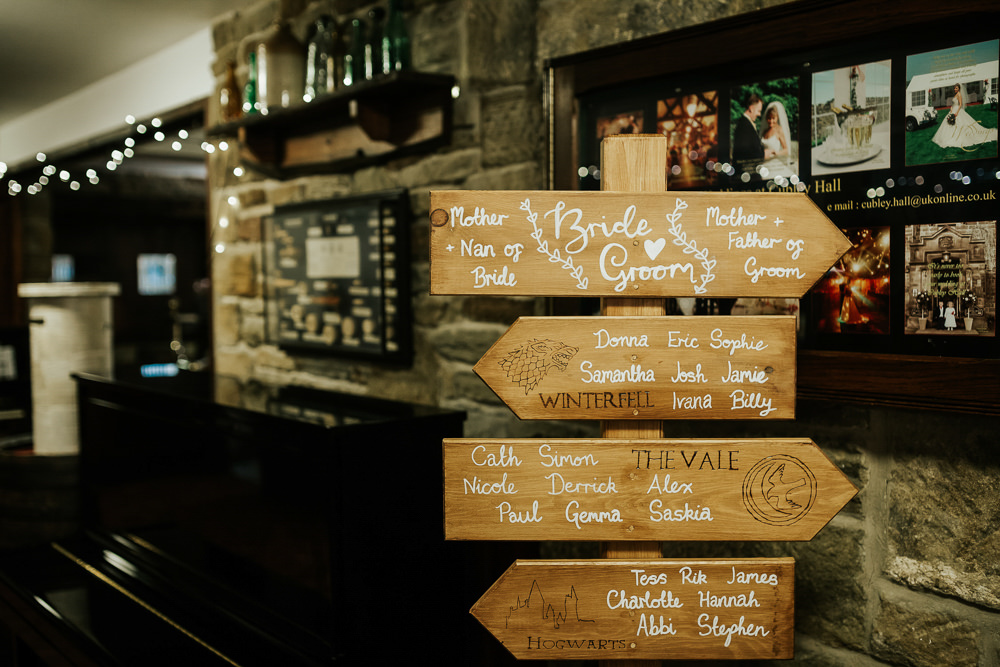 Hall
e mail : cubley.hall@ukonline.co.uk
Mother
+ Nan of
Bride
Bride
Groom
Mother +
Father of
Groom
Donna Eric Sophie
Samantha Josh Jamie
WINTERFELL Ivana Billy
Cath Simon THE VALE
Nicole Derrick Alex
Paul Gemma Saskia
Tess Rik James
Charlotte Hannah
Abbi Stephen
HOGWARTS